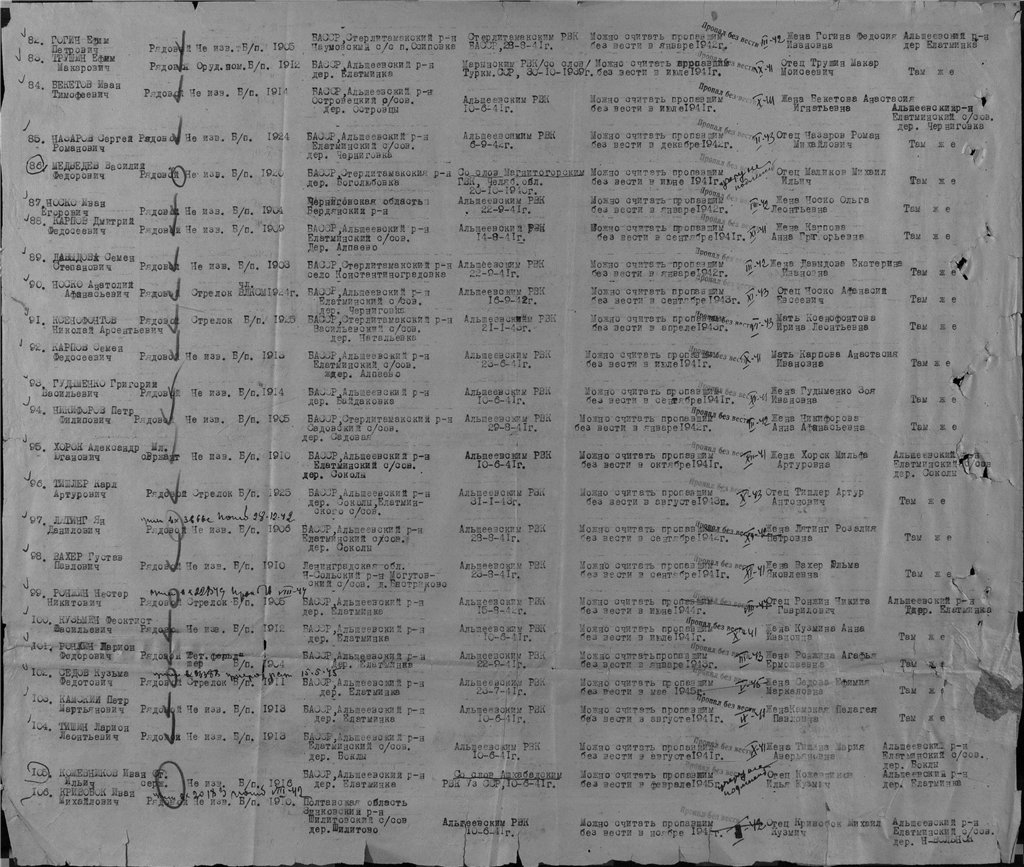 82. ГОГИН Ефим Петрович Рядовой Не изв. Б/п. 1903 БАССР, Стерлитамакский р-н Наумовский с/с п. Осиповка Стерлитамакским РВК БАССР, 28-8-41г. Можно считать пропавшим без вести в январе 1942г. Жена Гогина Федосия Ивановна Альшеевский р-н дер Елатминка
83. ТРУШИН Ефим Макарович Рядовой Оруд.ном. Б/п. 1912 БАССР, Альшеевский р-н дер. Елатминка Марыйским РВК/со слов/ Туркм.ССР, 30-10-1939г. Можно считать пропавшим без вести в июле 1941г. Отец Трушин Макар Моисеевич Там же
84. БЕКЕТОВ Иван Тимофеевич Рядовой Не изв. Б/п. 1914 БАССР, Альшеевский р-н Островецкий с/сов. дер. Островцы Альшеевским РВК 10-6-41г. Можно считать пропавшим без вести в июле 1941г. Жена Бекетова Анастасия Игнатьевна Альшеевский р-н Елатминский с/сов. дер. Черниговка
85. НАЗАРОВ Сергей Романович Рядовой Не изв. Б/п. 1924 БАССР, Альшеевский р-н Елатминский с/сов. дер. Черниговка Альшеевским РВК 6-9-42г. Можно считать пропавшим без вести в декабре 1942г. Отец Назаров Роман Михайлович Там же
86. МЕДВЕДЕВ Василий Федорович Рядовой Не изв. Б/п. БАССР, Стерлитамакский р-н дер. Боголюбовка Со слов Магнитогорским ГВК, Челяб.обл. Можно считать пропавшим без вести в июне 1941г. Отец Маликов Михаил Ильич Там же
87. НОСКО Иван Егорович Рядовой Не изв. Б/п. 1904 Черниговская область Бердянский р-н Альшеевским РВК 22-9-41г. Можно считать пропавшим без вести в январе 1942г. Жена Носко Ольга Леонтьевна Там же
88. КАРПОВ Дмитрий Федосеевич Рядовой Не изв. Б/п. 1909 БАССР, Альшеевский р-н Елатминский с/сов. Дер. Алпаево Альшеевским РВК 14-8-41г. Можно считать пропавшим без вести в сентябре 1941г. Жена Карпова Анна Григорьевна Там же
89. ДАВЫДОВ Семен Степанович Рядовой Не изв. Б/п. 1903 БАССР, Стерлитамакский р-н село Константиноградовка Альшеевским РВК 22-9-41г. Можно считать пропавшим без вести в январе 1942г. Жена Давыдова Екатерина Ивановна Там же
90. НОСКО Анатолий Афанасьевич Рядовой Стрелок чл. ВЛКСМ 1924г. БАССР, Альшеевский р-н Елатминский с/сов. дер. Черниговка Альшеевским РВК 16-9-42г. Можно считать пропавшим без вести в сентябре 1943г. Отец Носко Афанасий Евсеевич Там же
91. КСЕНОФОНТОВ Николай Арсентьевич Рядовой Стрелок Б/п. 1925 БАССР, Стерлитамакский р-н Васильевский с/сов. дер. Натальевка Альшеевским РВК 21-1-43г. Можно считать пропавшим без вести в апреле 1943г. Мать Ксенофонтова Ирина Леонтьевна Там же
92. КАРПОВ Семен Федосеевич Рядовой Не изв. Б/п. 1913 БАССР, Альшеевский р-н Елатминский с/сов. дер. Алпаево Альшеевским РВК 23-6-41г. Можно считать пропавшим без вести в июле 1941г. Мать Карпова Анастасия Ивановна Там же
93. ГУДЫМЕНКО Григорий Васильевич Рядовой Не изв. Б/п. 1914 БАССР, Альшеевский р-н дер. Вайдаковка Альшеевским РВК 10-6-41г. Можно считать пропавшим без вести в сентябре 1941г. Жена Гудыменко Зоя Ивановна Там же
94. НИКИФОРОВ Петр Филипович Рядовой Не изв. Б/п. 1905 БАССР, Стерлитамакский р-н Садовский с/сов. дер. Садовая Альшеевским РВК 29-8-41г. Можно считать пропавшим без вести в январе 1942г. Жена Никифорова Анна Афанасьевна Там же
95. ХОРОК Александр Юганович Мл. сержант Не изв. Б/п. 1910 БАССР, Альшеевский р-н Елатминский с/сов. дер. Соколы Альшеевским РВК 10-6-41г. Можно считать пропавшим без вести в октябре 1941г. Жена Хорок Мильфа Артуровна Альшеевский р-н Елатминский с/сов дер. Соколы
96. ТИШЛЕР Карл Артурович Рядовой Стрелок Б/п. 1925 БАССР, Альшеевский р-н дер. Соколы, Елатминского с/сов. Альшеевским РВК 31-1-43г. Можно считать пропавшим без вести в августе 1943г. Отец Тишлер Артур Антонович Там же
97. ЛЯТИНГ Ян Данилович Рядовой Не изв. Б/п. 1906 БАССР, Альшеевский р-н Елатминский с/сов. дер. Соколы Альшеевским РВК 28-8-41г. Можно считать пропавшим без вести в сентябре 1942г. Жена Лятинг Розалия Петровна Там же
98. ВАХЕР Густав Павлович Рядовой Не изв. Б/п. 1910 Ленинградская обл. Н-Сольский р-н Могутовский с/сов. д. Вистряково Альшеевским РВК 23-6-41г. Можно считать пропавшим без вести в сентябре 1941г. Жена Вахер Эльма Яковлевна Там же
99. РОНЖИН Нестер Никитович Рядовой Стрелок Б/п. 1905 БАССР, Альшеевский р-н дер. Елатминка Альшеевским РВК 15-8-42г. Можно считать пропавшим без вести в июне Отец Ронжин Никита Гаврилович Альшеевский р-н дер. Елатминка
100. КУЗЬМИН Феоктист Васильевич Рядовой Не изв. Б/п. 1912 БАССР, Альшеевский р-н дер. Елатминка Альшеевским РВК 10-6-41г. Можно считать пропавшим без вести в июле 1941г. Жена Кузмина Анна Ивановна Там же
101. РОНЖИН Ларион Федорович Рядовой Вет.фельдшер Б/п. 1904 БАССР, Альшеевский р-н дер. Елатминка Альшеевским РВК 22-9-41г. Можно считать пропавшим без вести в январе 1943г. Жена Ронжина Агафья Ермолаевна Там же
102. СЕДОВ Кузьма Федотович Рядовой Стрелок Б/п. 1911 БАССР, Альшеевский р-н дер. Елатминка Альшеевским РВК 23-7-41г. Можно считать пропавшим без вести в мае 1945г. Жена Седова Ефимия Маркеловна Там же
103. КАМСКИЙ Петр Мартьянович Рядовой Не изв. Б/п. 1913 БАССР, Альшеевский р-н дер. Елатминка Альшеевским РВК 10-6-41г. Можно считать пропавшим без вести в августе 1941г. Жена Камская Пелагея Павловна Там же
104. ТИШИН Ларион Леонтьевич Рядовой Не изв. Б/п. 1913 БАССР, Альшеевский р-н Елатминский с/сов. дер. Боклы Альшеевским РВК 10-6-41г. Можно считать пропавшим без вести в августе 1941г. Жена Тишина Мария Аверьяновна Альшеевский р-н Елатминский с/сов. дер. Боклы
105. КОЖЕВНИКОВ Иван Ильич Ст. серж. Не изв. Б/п. 1916 БАССР, Альшеевский р-н дер. Елатминка Со слов Ашхабадским РВК Уз ССР, 10-6-41г. Можно считать пропавшим без вести в феврале 1945г. Отец Кожевников Илья Кузмич Альшеевский р-н дер. Елатминка
106. КРИВОБОК Иван Михайлович Рядовой Не изв. Б/п. 1910. Полтавская область Зинковский р-н Шилитовский с/сов дер. Шилитово Альшеевским РВК 10-6-41г. Можно считать пропавшим без вести в ноябре 1941г. Отец Кривобок Михаил Кузмич Альшеевский р-н Елатминский с/сов.